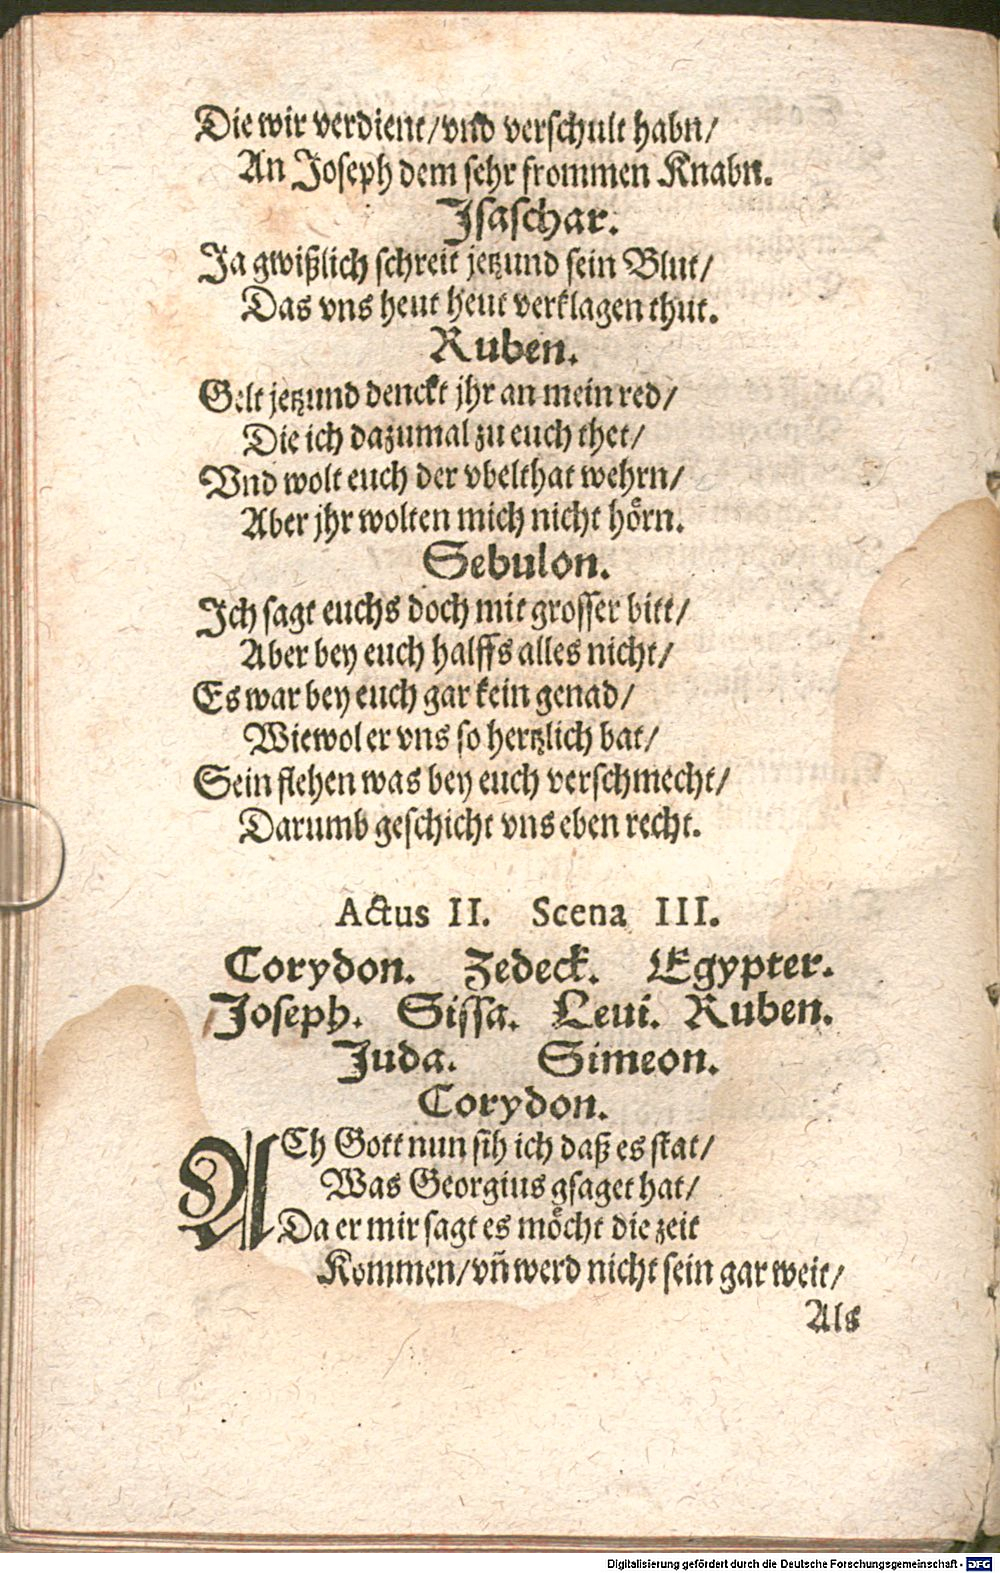 Die wir verdient/vnd verschult habn/
An Joseph dem sehr frommen Knabn.
Jsaschar.
Ja gwißlich schreit jetzund sein Blut/
Das vns heut heut verklagen thut.
Ruben.
Gelt jetzund denckt jhr an mein red/
Die ich dazumal zu euch thet/
Vnd wolt euch der vbelthat wehrn/
Aber jhr wolten mich nicht hoͤrn.
Sebulon.
Ich sagt euchs doch mit grosser bitt/
Aber bey euch halffs alles nicht/
Es war bey euch gar kein genad/
Wiewol er vns so hertzlich bat/
Sein flehen was bey euch verschmecht/
Darumb geschicht vns eben recht.
Actus II. Scena III.
Corydon. Zedeck. Egypter.
Joseph. Sissa. Leui. Ruben.
Juda. Simeon.
Corydon.
ACh Gott nun sih ich daß es stat/
Was Georgius gsaget hat/
Da er mir sagt es moͤcht die zeit
Kommen/vñ werd nicht sein gar weit/
Als
Digitalisierung gefördert durch die Deutsche Forschungsgemeinschaft - DFG